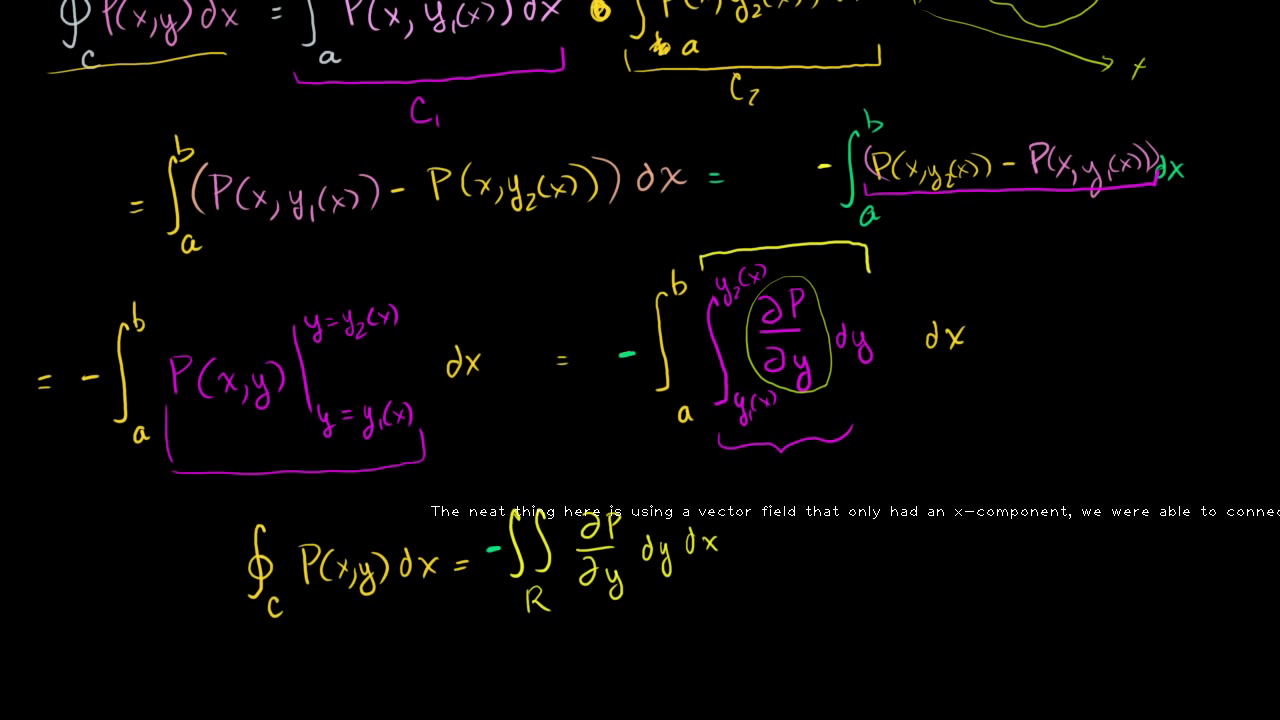 ∮_C P(x,y) dx = ∫_a P(x, y₁(x)) dx ∫_a y₂(x)
C₁ C₂ x
= ∫_a^b (P(x, y₁(x)) - P(x, y₂(x))) dx = - ∫_a^b (P(x,y₂(x)) - P(x,y₁(x))) dx
= - ∫_a^b P(x,y) |_{y = y₁(x)}^{y = y₂(x)} dx = - ∫_a^b ∫_{y₁(x)}^{y₂(x)} ∂P/∂y dy dx
The neat thing here is using a vector field that only had an x-component, we were able to
∮_C P(x,y) dx = - ∬_R ∂P/∂y dy dx